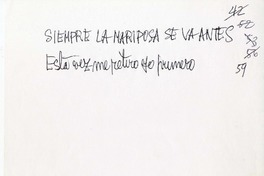 SIEMPRE LA MARIPOSA SE VA ANTES
Esta vez me retiro yo primero
42
52
58
56
59